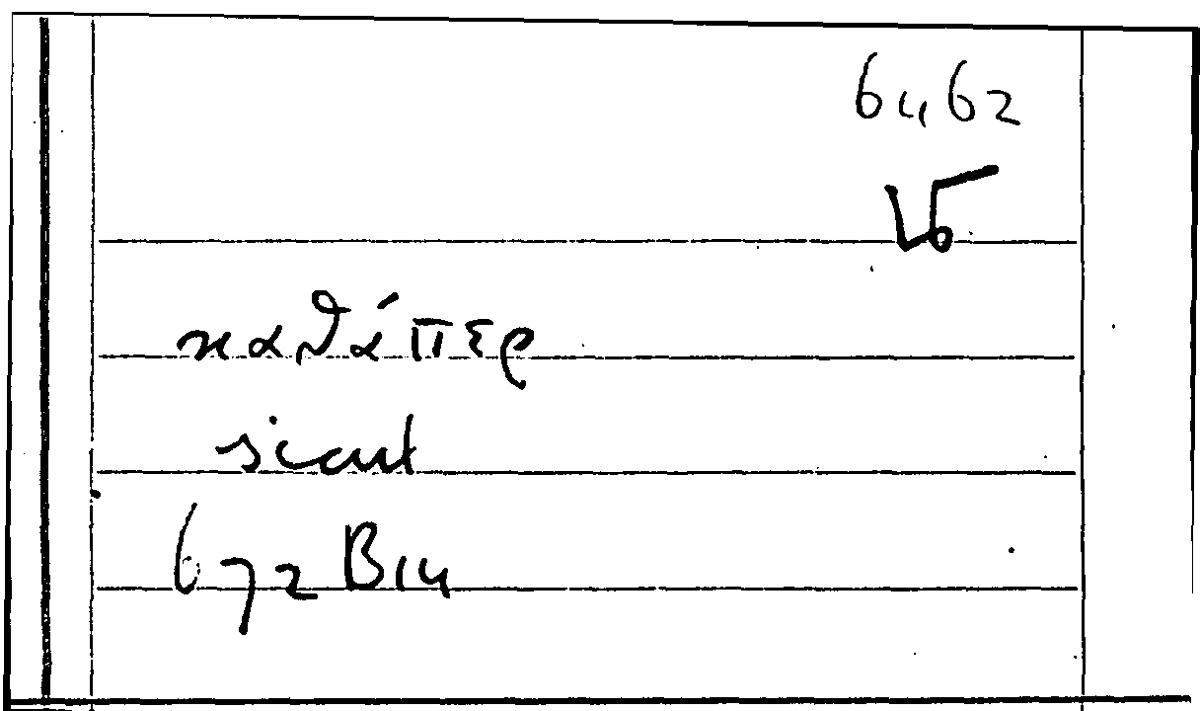 64,62
καθάπερ
sicut
672 B14